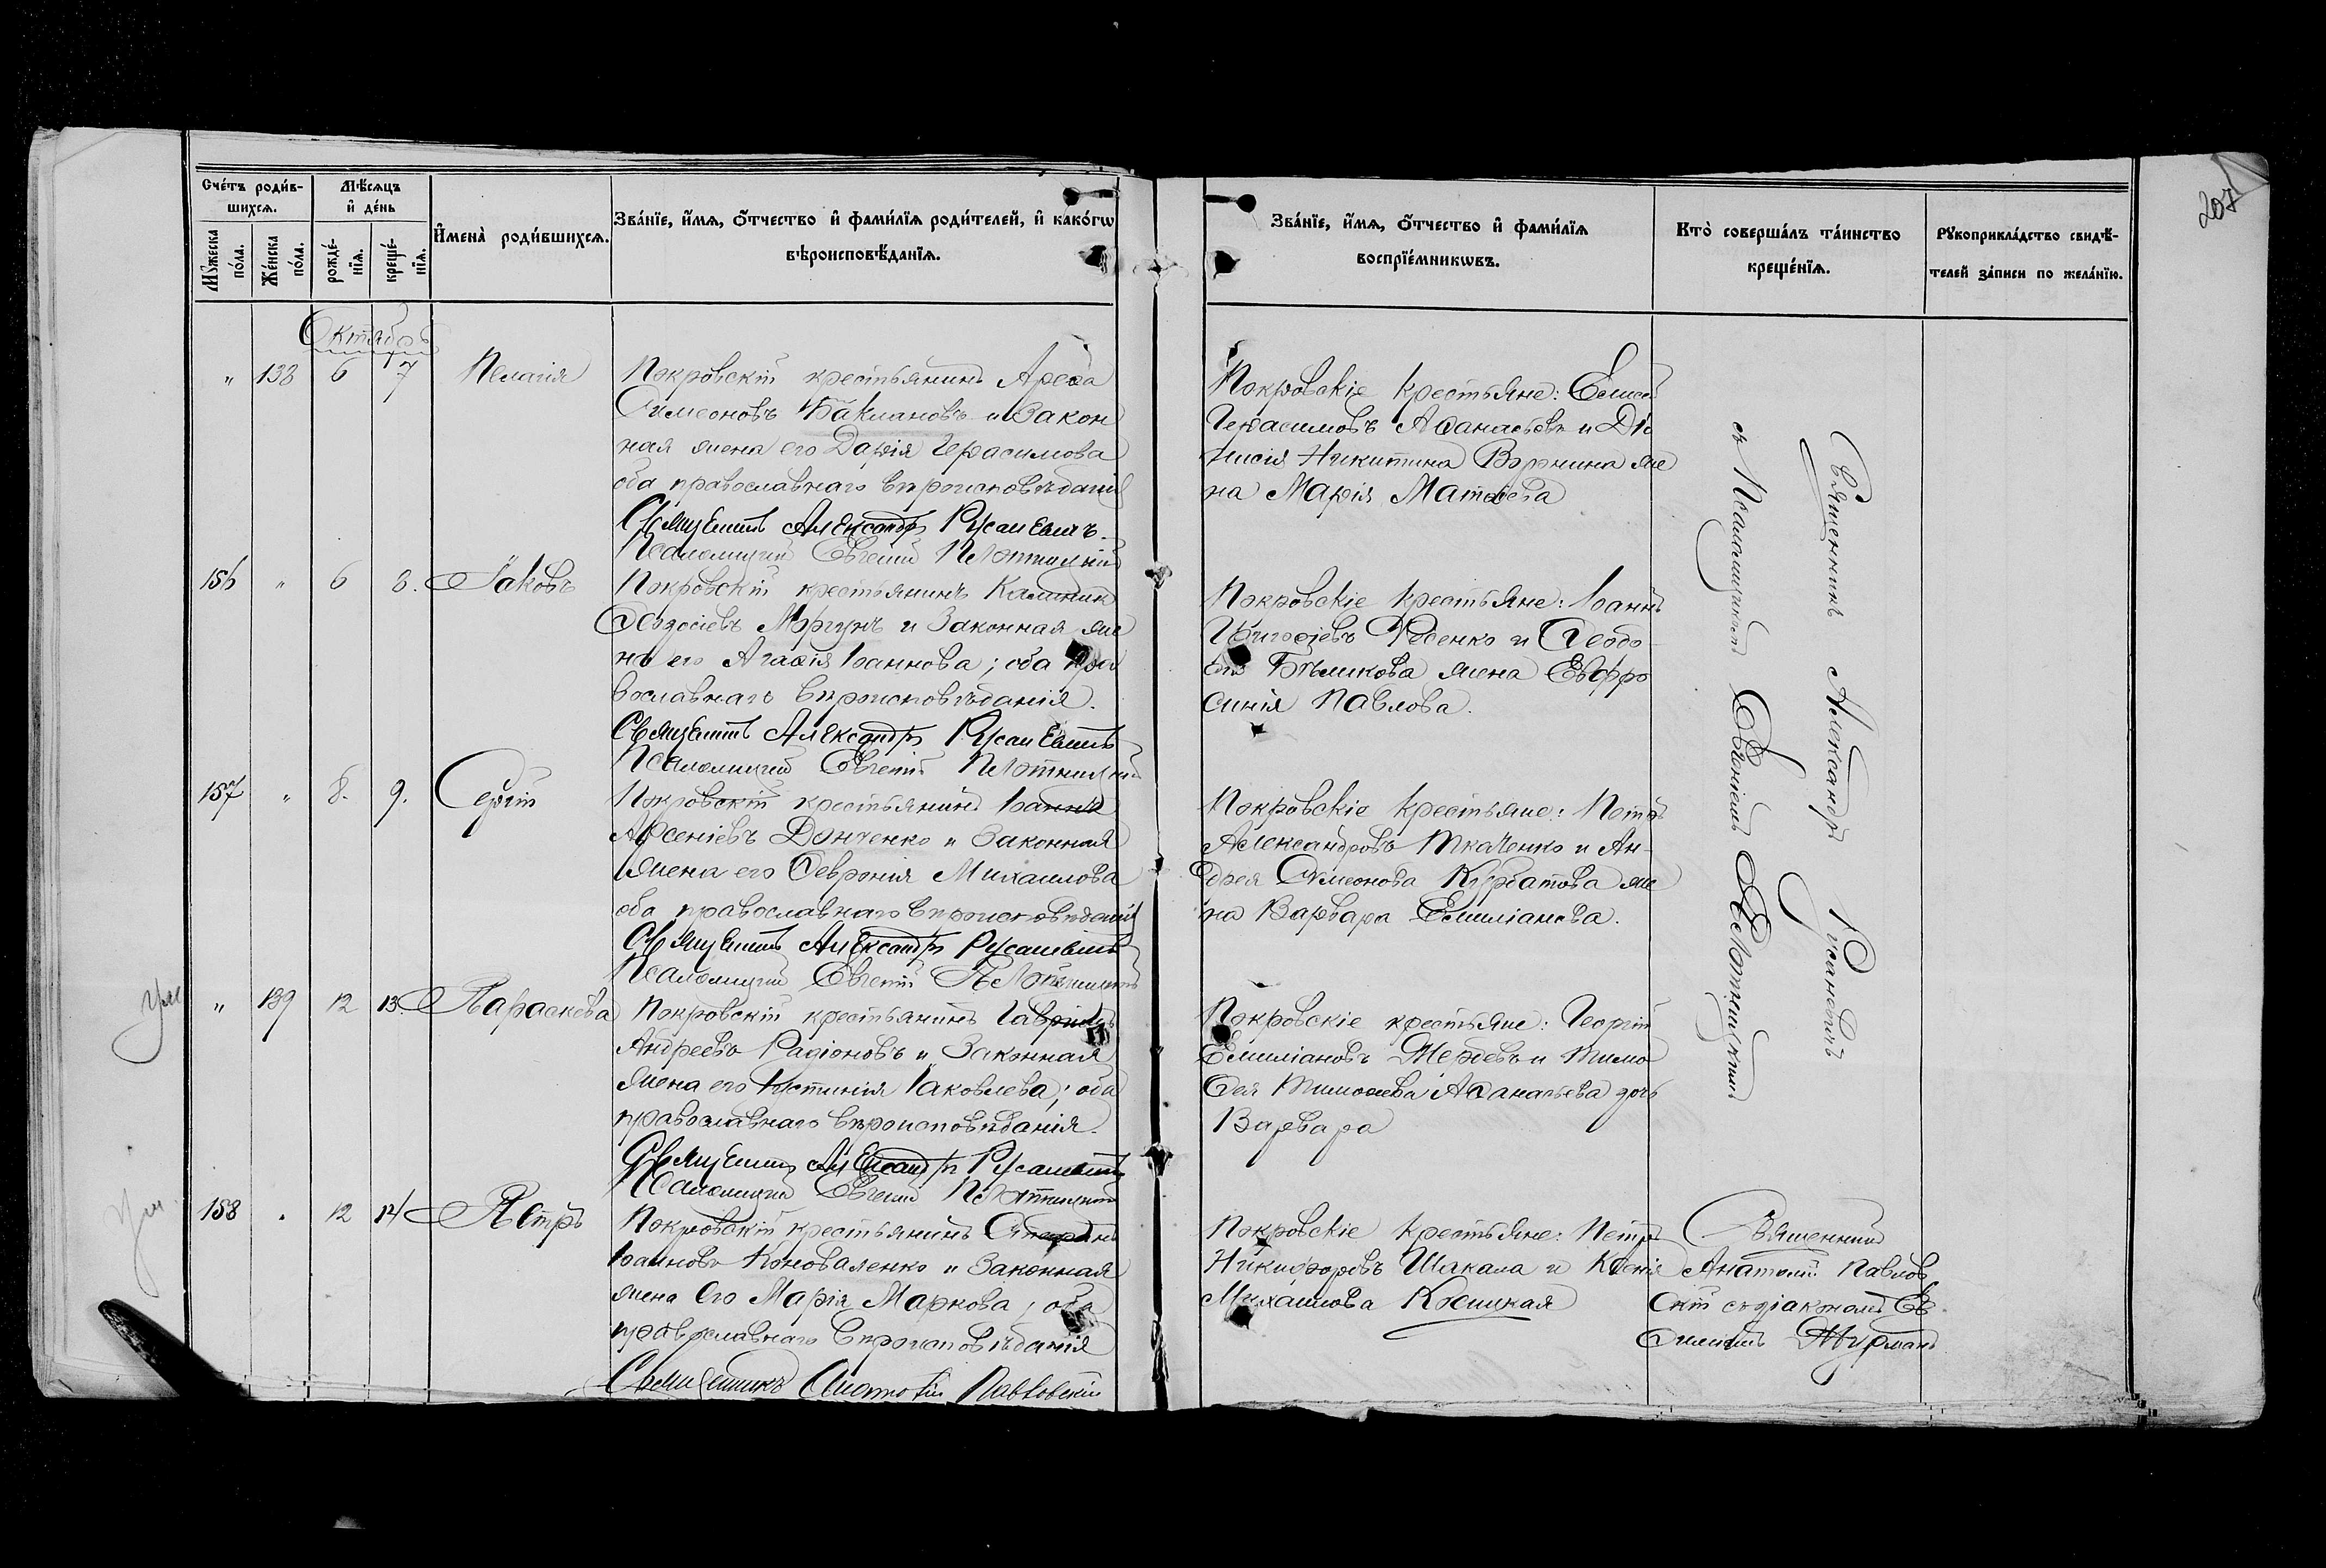 207
Счетъ родив-
шихся.
Мѣсяцъ
и день
Мужеска
пола.
Женска
пола.
рожде-
нія.
креще-
нія.
Имена родившихся.
Званіе, имя, отчество и фамилія родителей, и какогѡ
вѣроисповѣданія.
Званіе, имя, отчество и фамилія
воспріемникѡвъ.
Кто совершалъ таинство
крещенія.
Рукоприкладство свидѣ-
телей записи по желанію.
Октябрь
" 138 6 7 Пелагія
Покровскій крестьянинъ Арефа
Симеоновъ Баклановъ и закон
ная жена его Дарія Герасимова
оба православнаго вѣроисповѣданія
Священникъ Александръ Русаневичъ
Псаломщикъ Евгеній Плотницкій
Покровскіе крестьяне: Елисей
Герасимовъ Афанасьевъ и Діо
нисія Никитина жe
на Марія Матфеева
156 " 6 8. Іаковъ
Покровскій крестьянинъ Калиник
Феодосіевъ Моргунъ и законная же
на его Агафія Іоаннова; оба пра
вославнаго вѣроисповѣданія.
Священникъ Александръ Русаневичъ
Псаломщикъ Евгеній Плотницкій
Покровскіе крестьяне: Іоаннъ
Григоріевъ и Феодо
Бѣликова жена Евфро
синія Павлова.
157 " 8. 9. Сергій
Покровскій крестьянинъ Іоаннъ
Арсеніевъ Донченко и законная
жена его Феврония Михаилова
оба православнаго вѣроисповѣданія
Священникъ Александръ Русаневичъ
Псаломщикъ Евгеній Плотницкій
Покровскіе крестьяне: Петръ
Александровъ Ткаченко и Ан-
дрея Симеонова Курбатова же
на Варвара Емиліанова.
" 139 12 13. Параскева
Покровскій крестьянинъ Гавріилъ
Андреевъ Радіоновъ и законная
жена его Іустинія Іаковлева; оба
православнаго вѣроисповѣданія.
Священникъ Александръ Русаневичъ
Псаломщикъ Евгеній Плотницкій
Покровскіе крестьяне: Георгій
Емиліановъ и Тимо
фея Тимофеева Афанасьева дочь
Варвара
158 " 12 14 Петръ
Покровскій крестьянинъ Стефанъ
Іоанновъ Коноваленко и законная
жена его Марія Маркова; оба
православнаго вѣроисповѣданія
Священникъ Анатолій Павловскій
Покровскіе крестьяне: Петръ
Никифоровъ Шакала и Ксенія
Михаилова
Священникъ Александръ Русаневичъ
съ Псаломщикомъ Евгеніемъ Плотницкимъ
Священникъ
Анатолій Павлов
скій съ діакономъ Ев
фиміемъ